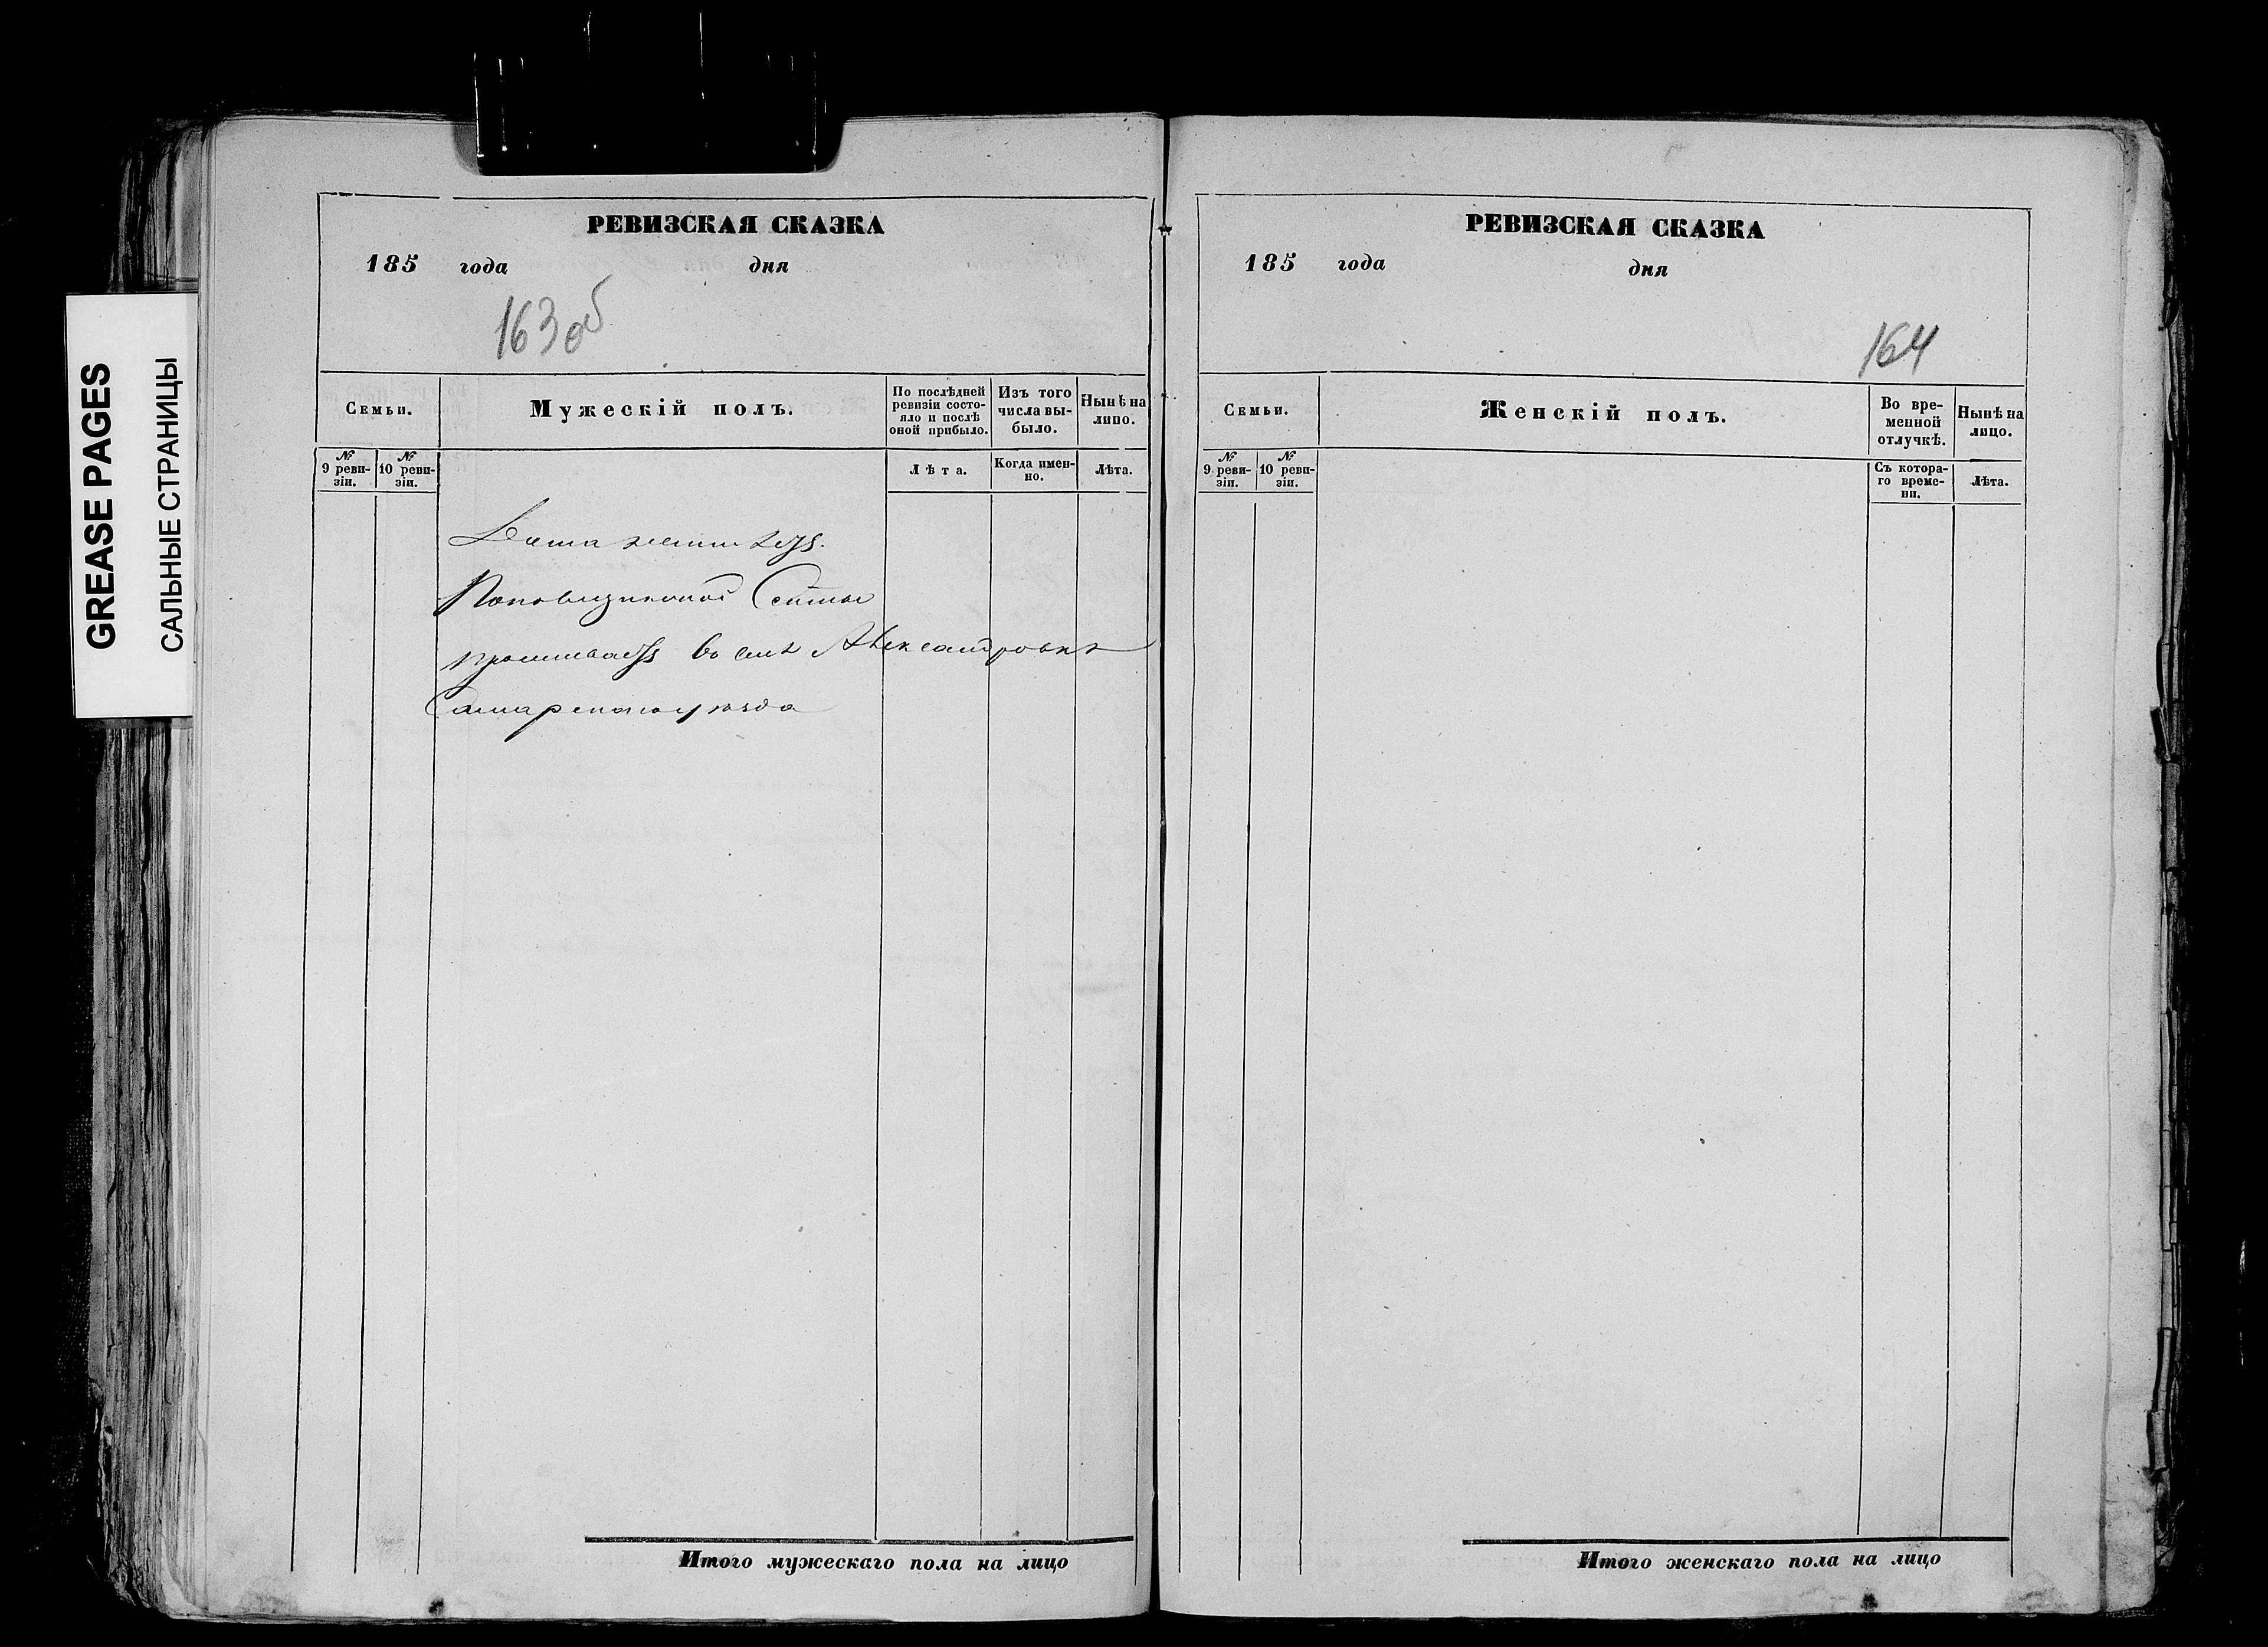 GREASE PAGES
САЛЬНЫЕ СТРАНИЦЫ
РЕВИЗСКАЯ СКАЗКА
185 года дня
163 об
Семьи.
Мужескій полъ.
По послѣдней ревизіи состо-
яло и послѣ
оной прибыло.
Изъ того
числа вы-
было.
Нынѣ на
лицо.
№
9 реви-
зіи.
№
10 реви-
зіи.
Лѣта.
Когда имен-
но.
Лѣта.
проживаетъ въ селѣ Александровкѣ
Самарскаго уѣзда
Итого мужескаго пола на лицо
РЕВИЗСКАЯ СКАЗКА
185 года дня
164
Семьи.
Женскій полъ.
Во вре-
менной
отлучкѣ.
Нынѣ на
лицо.
№
9 реви-
зіи.
№
10 реви-
зіи.
Съ котора-
го време-
ни.
Лѣта.
Итого женскаго пола на лицо